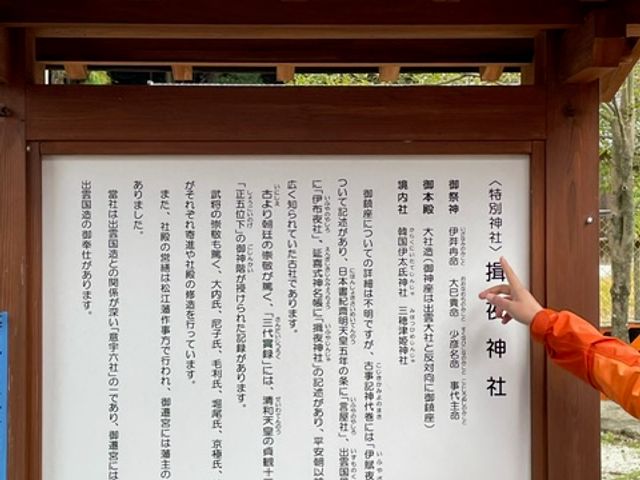 〈特別神社〉 揖夜神社
御祭神 伊弉冉命 大已貴命 少彦名命 事代主命
御本殿 大社造(御神座は出雲大社と反対向に御鎮座)
境内社 韓国伊太氐神社 三穂津姫神社
御鎮座についての詳細は不明ですが、古事記神代巻には「伊賦夜
ついて記述があり、日本書紀齊明天皇五年の条に「言屋社」、出雲国
に「伊布夜社」、延喜式神名帳に「揖夜神社」の記述があり、平安朝以
広く知られていた古社であります。
古より朝廷の崇敬が篤く、「三代實録」には、清和天皇の貞観十
「正五位下」の御神階が授けられた記録があります。
武将の崇敬も篤く、大内氏、尼子氏、毛利氏、堀尾氏、京極氏、
がそれぞれ寄進や社殿の修造を行っています。
また、社殿の営繕は松江藩作事方で行われ、御遷宮には藩主の
ありました。
当社は出雲国造との関係が深い「意宇六社」の一であり、御遷宮には
出雲国造の御奉仕があります。